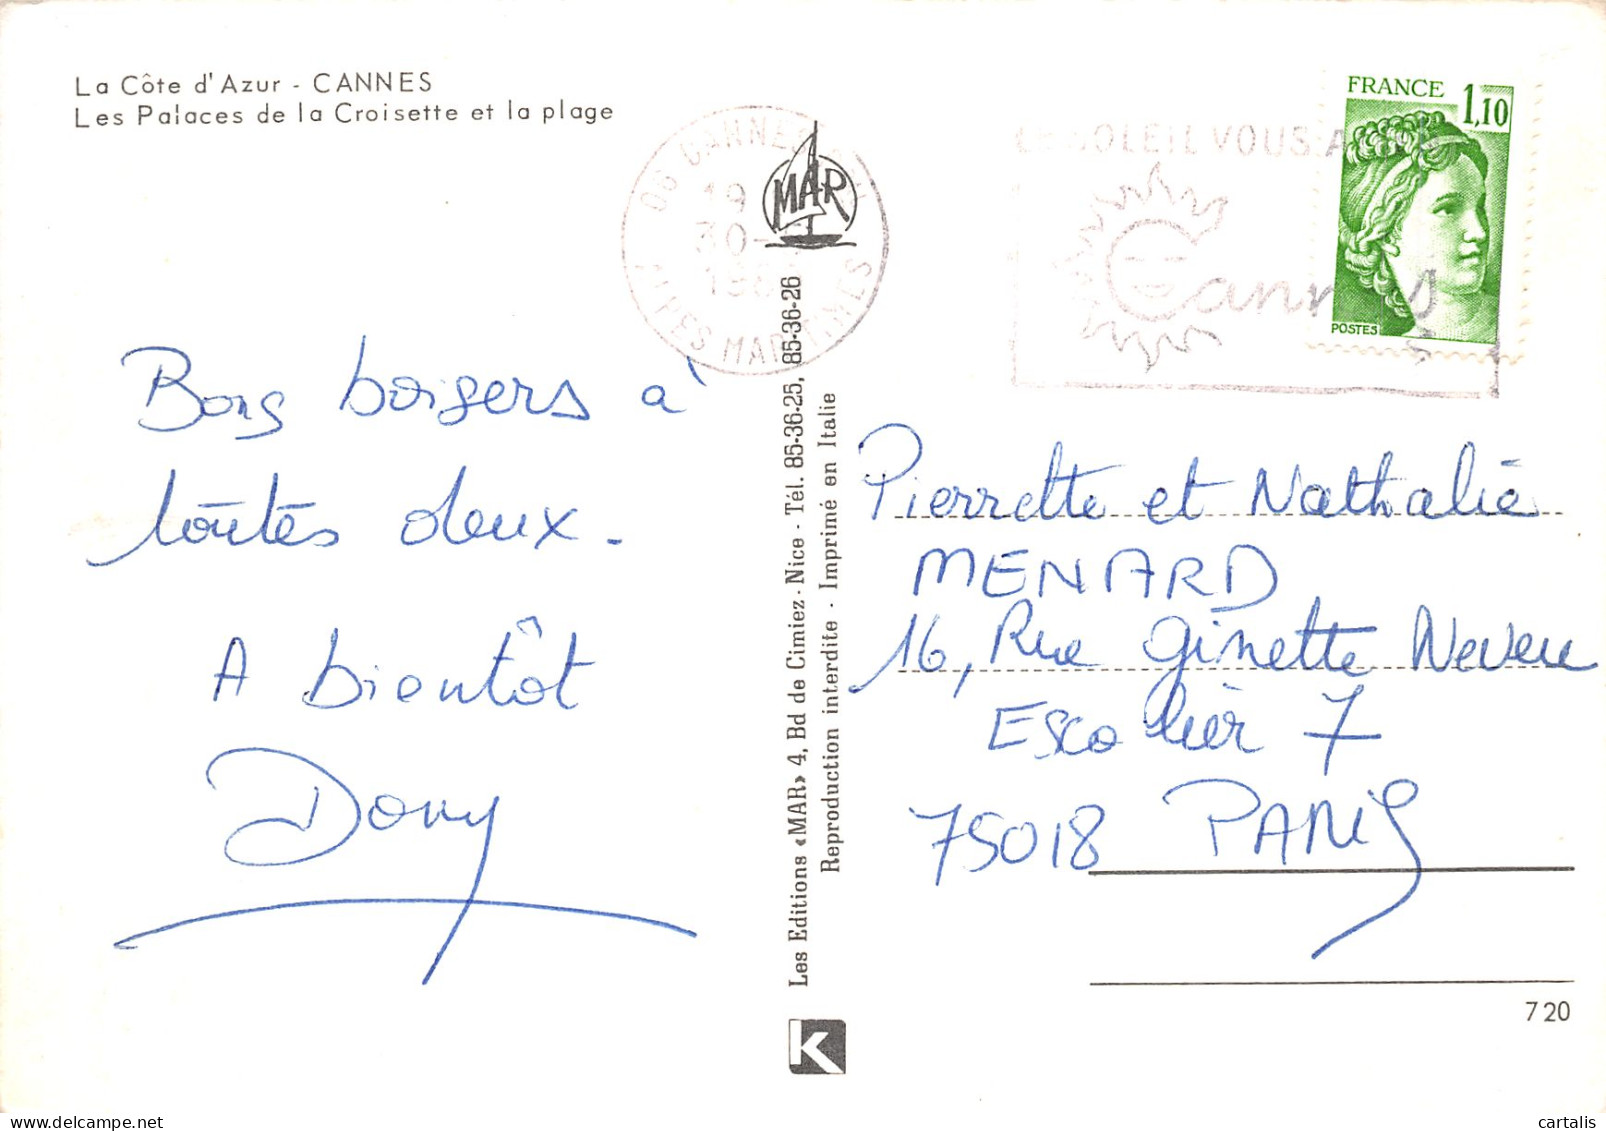 La Côte d'Azur - CANNES
Les Palaces de la Croisette et la plage
Bons baisers à
toutes deux.
A bientôt
Dory
06 CANNES
19
30-
198
ALPES MARITIMES
MAR
Les Editions «MAR» 4, Bd de Cimiez - Nice - Tél. 85-36-25, 85-36-26
Reproduction interdite - Imprimé en Italie
K
LE SOLEIL VOUS A
Cannes
FRANCE 1,10
POSTES
Pierrette et Nathalie
MENARD
16, Rue Ginette Neveu
Escalier 7
75018 PARIS
720
delcampe.net
cartalis